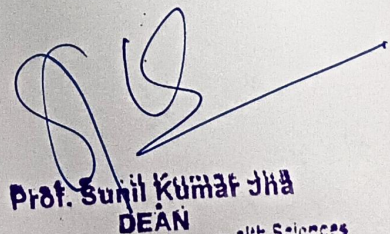 Prof. Sunil Kumar Jha
DEAN
Sciences